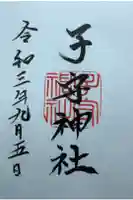 子守神社
令和三年九月五日